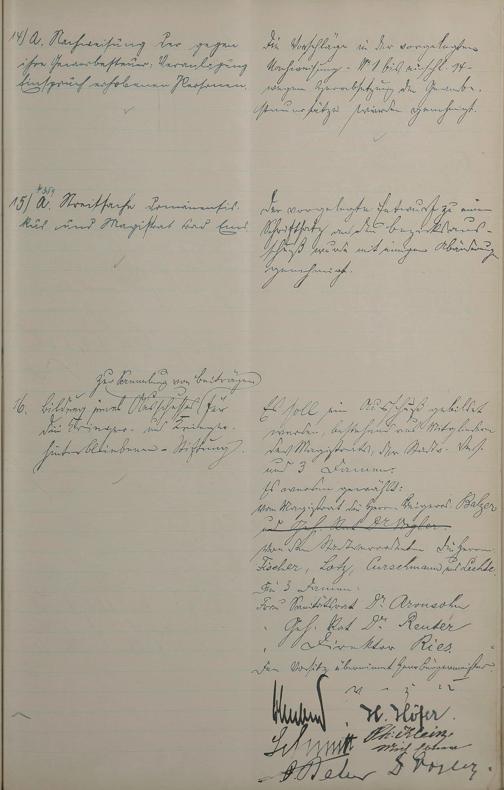 14) A. Nachweisung der gegen
ihre Gewerbesteuer-Veranlagung
Einspruch erhobenen Personen.
Die Vorschläge in der vorgelegten
Nachweisung - № 1 bis einschl. 14 -
wegen Herabsetzung der Gewerbe-
steuersätze wurden genehmigt.
15) A. Streitsache Domänenfis-
kus und Magistrat Bad Ems.
Der vorgelegte Entwurf zu einem
Schriftsatz an den Bezirksaus-
schuß wurde mit einigen Abänderung
genehmigt.
zur Sammlung von Beiträgen
16. Bildung eines Ausschusses für
die Krieger- und Krieger-
hinterbliebenen-Stiftung.
Es soll ein Ausschuß gebildet
werden, bestehend aus Mitgliedern
des Magistrats, der Stadtv. Vers.
und 3 Damen.
Es werden gewählt:
vom Magistrat die Herren Beigeord. Balzer
und Geh. Rat Dr. Vogler.
von den Stadtverordneten die Herren
Fischer, Lotz, Curschmann und
Die 3 Damen:
Frau Sanitätsrat Dr. Aronsohn
" Geh. Rat Dr. Reuter
" Direktor Ries.
Den Vorsitz übernimmt Herr Bürgermeister.
v. g. u.
H. Höfer.
Schmitt Ph. Klein
D Vogler.